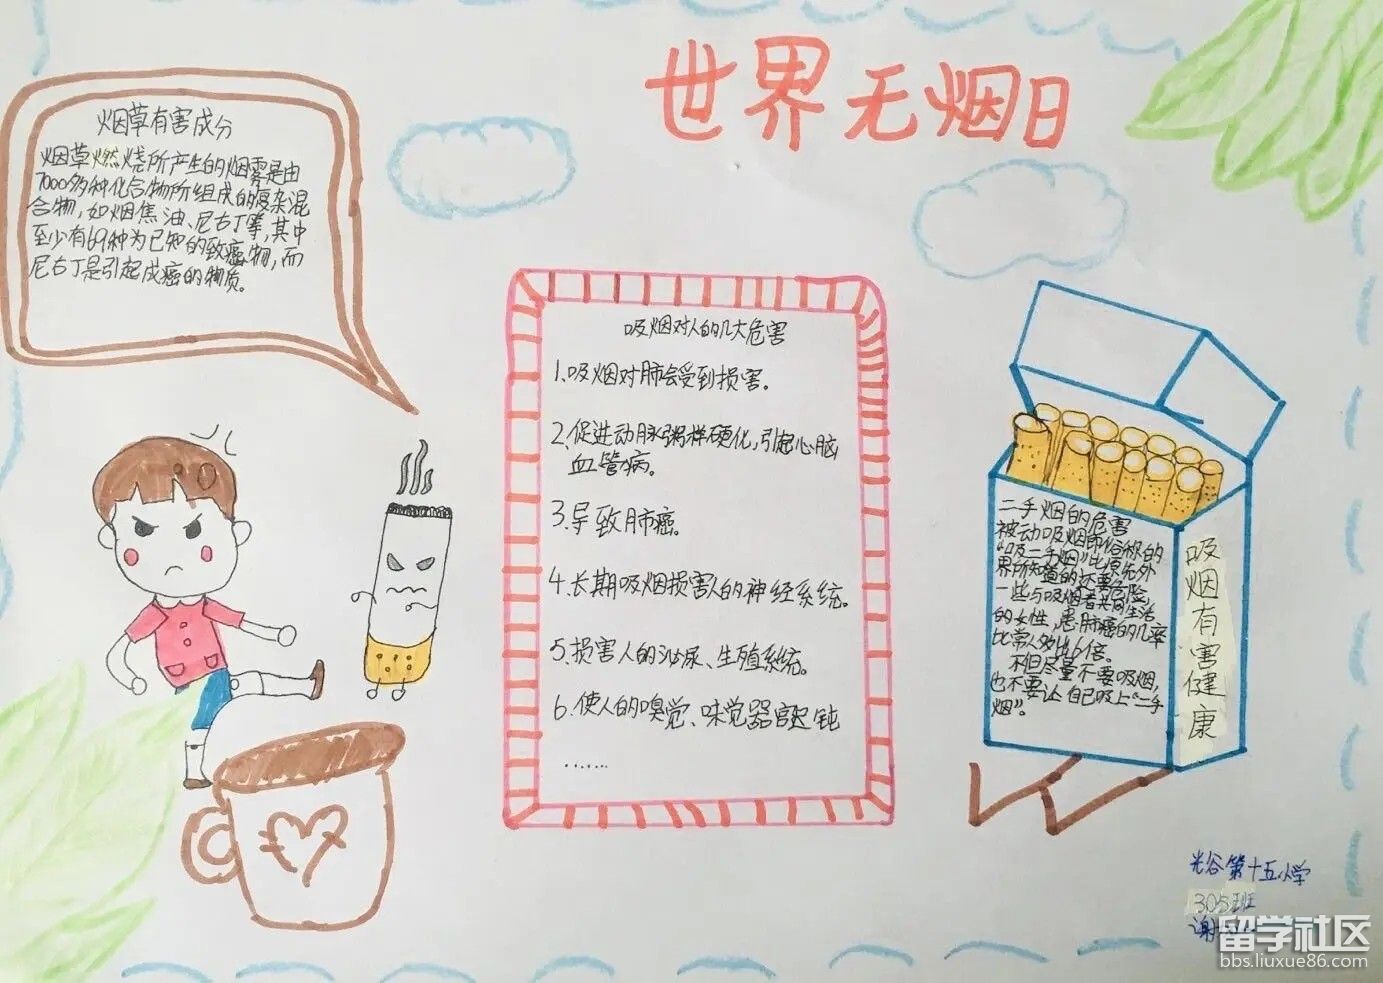 世界无烟日
烟草有害成分
烟草燃烧所产生的烟雾是由
7000多种化合物所组成的复杂混
合物，如烟焦油、尼古丁等，其中
至少有69种为已知的致癌物，而
尼古丁是引起成癌的物质。
吸烟对人的几大危害
1.吸烟对肺会受到损害。
2.促进动脉粥样硬化，引起心脑
血管病。
3.导致肺癌。
4.长期吸烟损害人的神经系统。
5.损害人的泌尿、生殖系统。
6.使人的嗅觉、味觉器官迟钝
……
二手烟的危害
被动吸烟即俗称的
“吸二手烟”比原先外
界所知道的还要危险，
一些与吸烟者共同生活
的女性，患肺癌的几率
比常人多出6倍。
不但尽量不要吸烟，
也不要让自己吸上“二手
烟”。
吸烟有害健康
光谷第十五小学
305班
谢
留学社区
bbs.liuxue86.com